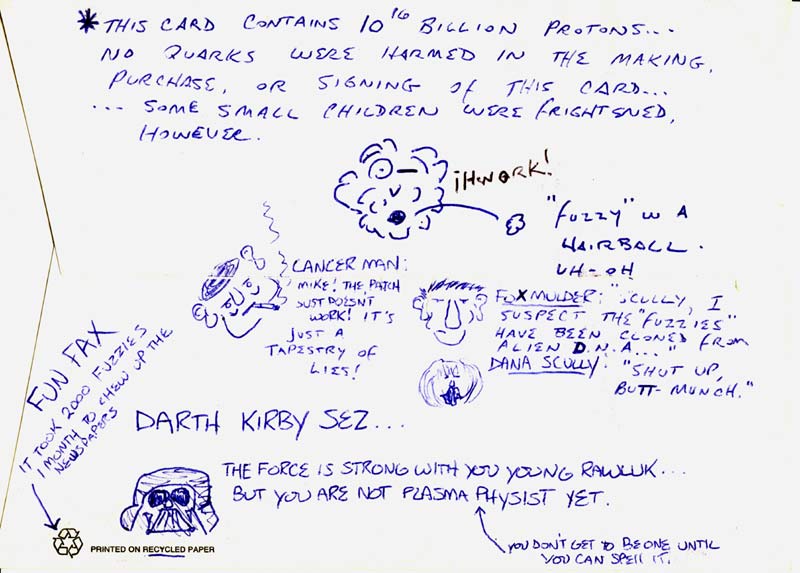 *THIS CARD CONTAINS 10^16 BILLION PROTONS...
NO QUARKS WERE HARMED IN THE MAKING,
PURCHASE, OR SIGNING OF THIS CARD...
... SOME SMALL CHILDREN WERE FRIGHTENED,
HOWEVER.
¡HWORK!
"FUZZY" W A
HAIRBALL.
UH-OH
CANCER MAN:
MIKE! THE PATCH
JUST DOESN'T
WORK! IT'S
JUST A
TAPESTRY OF
LIES!
FOX MULDER: "SCULLY, I
SUSPECT THE "FUZZIES"
HAVE BEEN CLONED FROM
ALIEN D.N.A..."
DANA SCULLY: "SHUT UP,
BUTT-MUNCH."
FUN FAX
IT TOOK 2000 FUZZIES
1 MONTH TO CHEW UP THE
NEWSPAPERS
DARTH KIRBY SEZ...
THE FORCE IS STRONG WITH YOU YOUNG RAWLUK...
BUT YOU ARE NOT PLASMA PHYSIST YET.
YOU DON'T GET TO BE ONE UNTIL
YOU CAN SPELL IT.
PRINTED ON RECYCLED PAPER